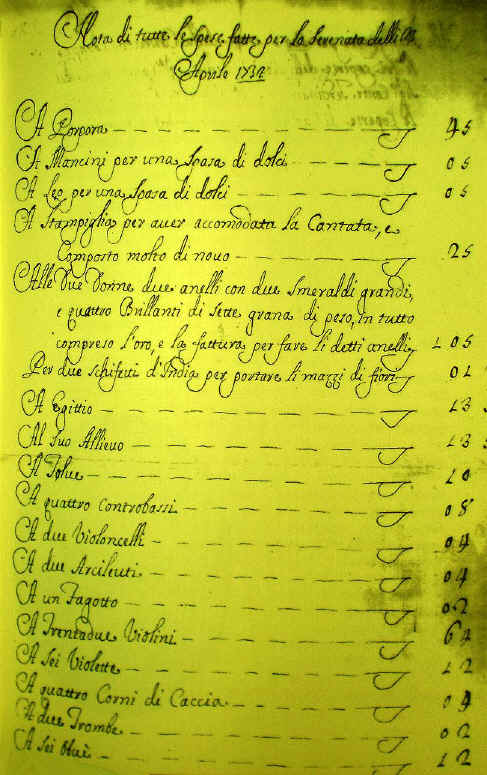 Nota di tutte le spese fatte per la Serenata delli
Aprile 1732
A Porpora 45
A Mancini per una Spasa di dolci 05
A Leo per una Spasa di dolci 05
A Stampiglia per auer accomodata la Cantata, e
Composto molto di nouo 25
Alle due Donne due anelli con due Smeraldi grandi,
e quattro Brillanti di sette grana di peso, in tutto
compreso l'oro, e la fattura per fare li detti anelli 105
Per due schifetti d'India per portare li mazzi di fiori
A Egittio 13
Al Suo Allieuo 13
A 10
A quattro Controbassi 08
A due Violoncelli 04
A due Arcileuti 04
A un Fagotto 02
A Trentadue Violini 64
A Sei Violette 12
A quattro Corni di Caccia 04
A due Trombe 02
A Sei Obuè 12